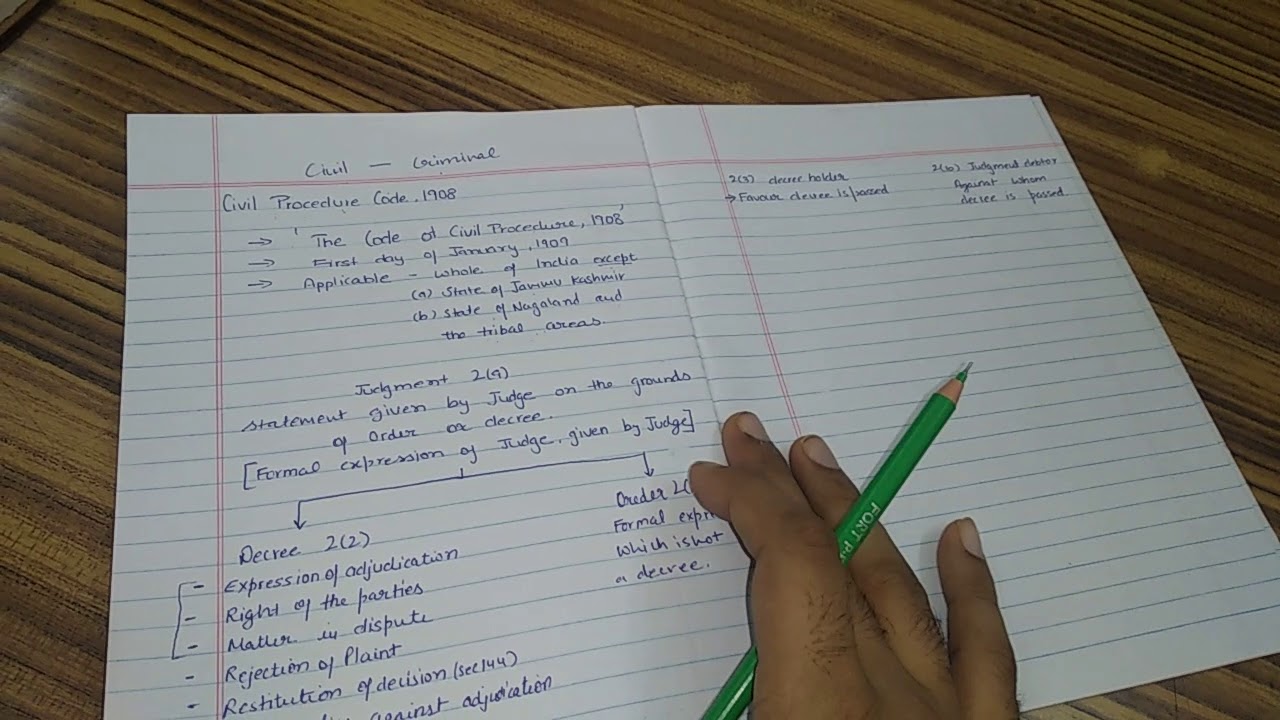 Civil — Criminal
Civil Procedure Code, 1908
→ 'The Code of Civil Procedure, 1908'
→ First day of January, 1909
→ Applicable - Whole of India except
(a) State of Jammu Kashmir
(b) State of Nagaland and
the tribal areas.
Judgment 2(9)
Statement given by Judge on the grounds
of Order or decree.
[Formal expression of Judge, given by Judge]
Decree 2(2)
- Expression of adjudication
- Right of the parties
- Matter in dispute
- Rejection of Plaint
- Restitution of decision (sec 144)
against adjudication
Order 2(
Formal expr
which is not
a decree.
2(3) decree holder
→ Favour decree is passed
2(10) Judgment debtor
Against whom
decree is passed
FORT P